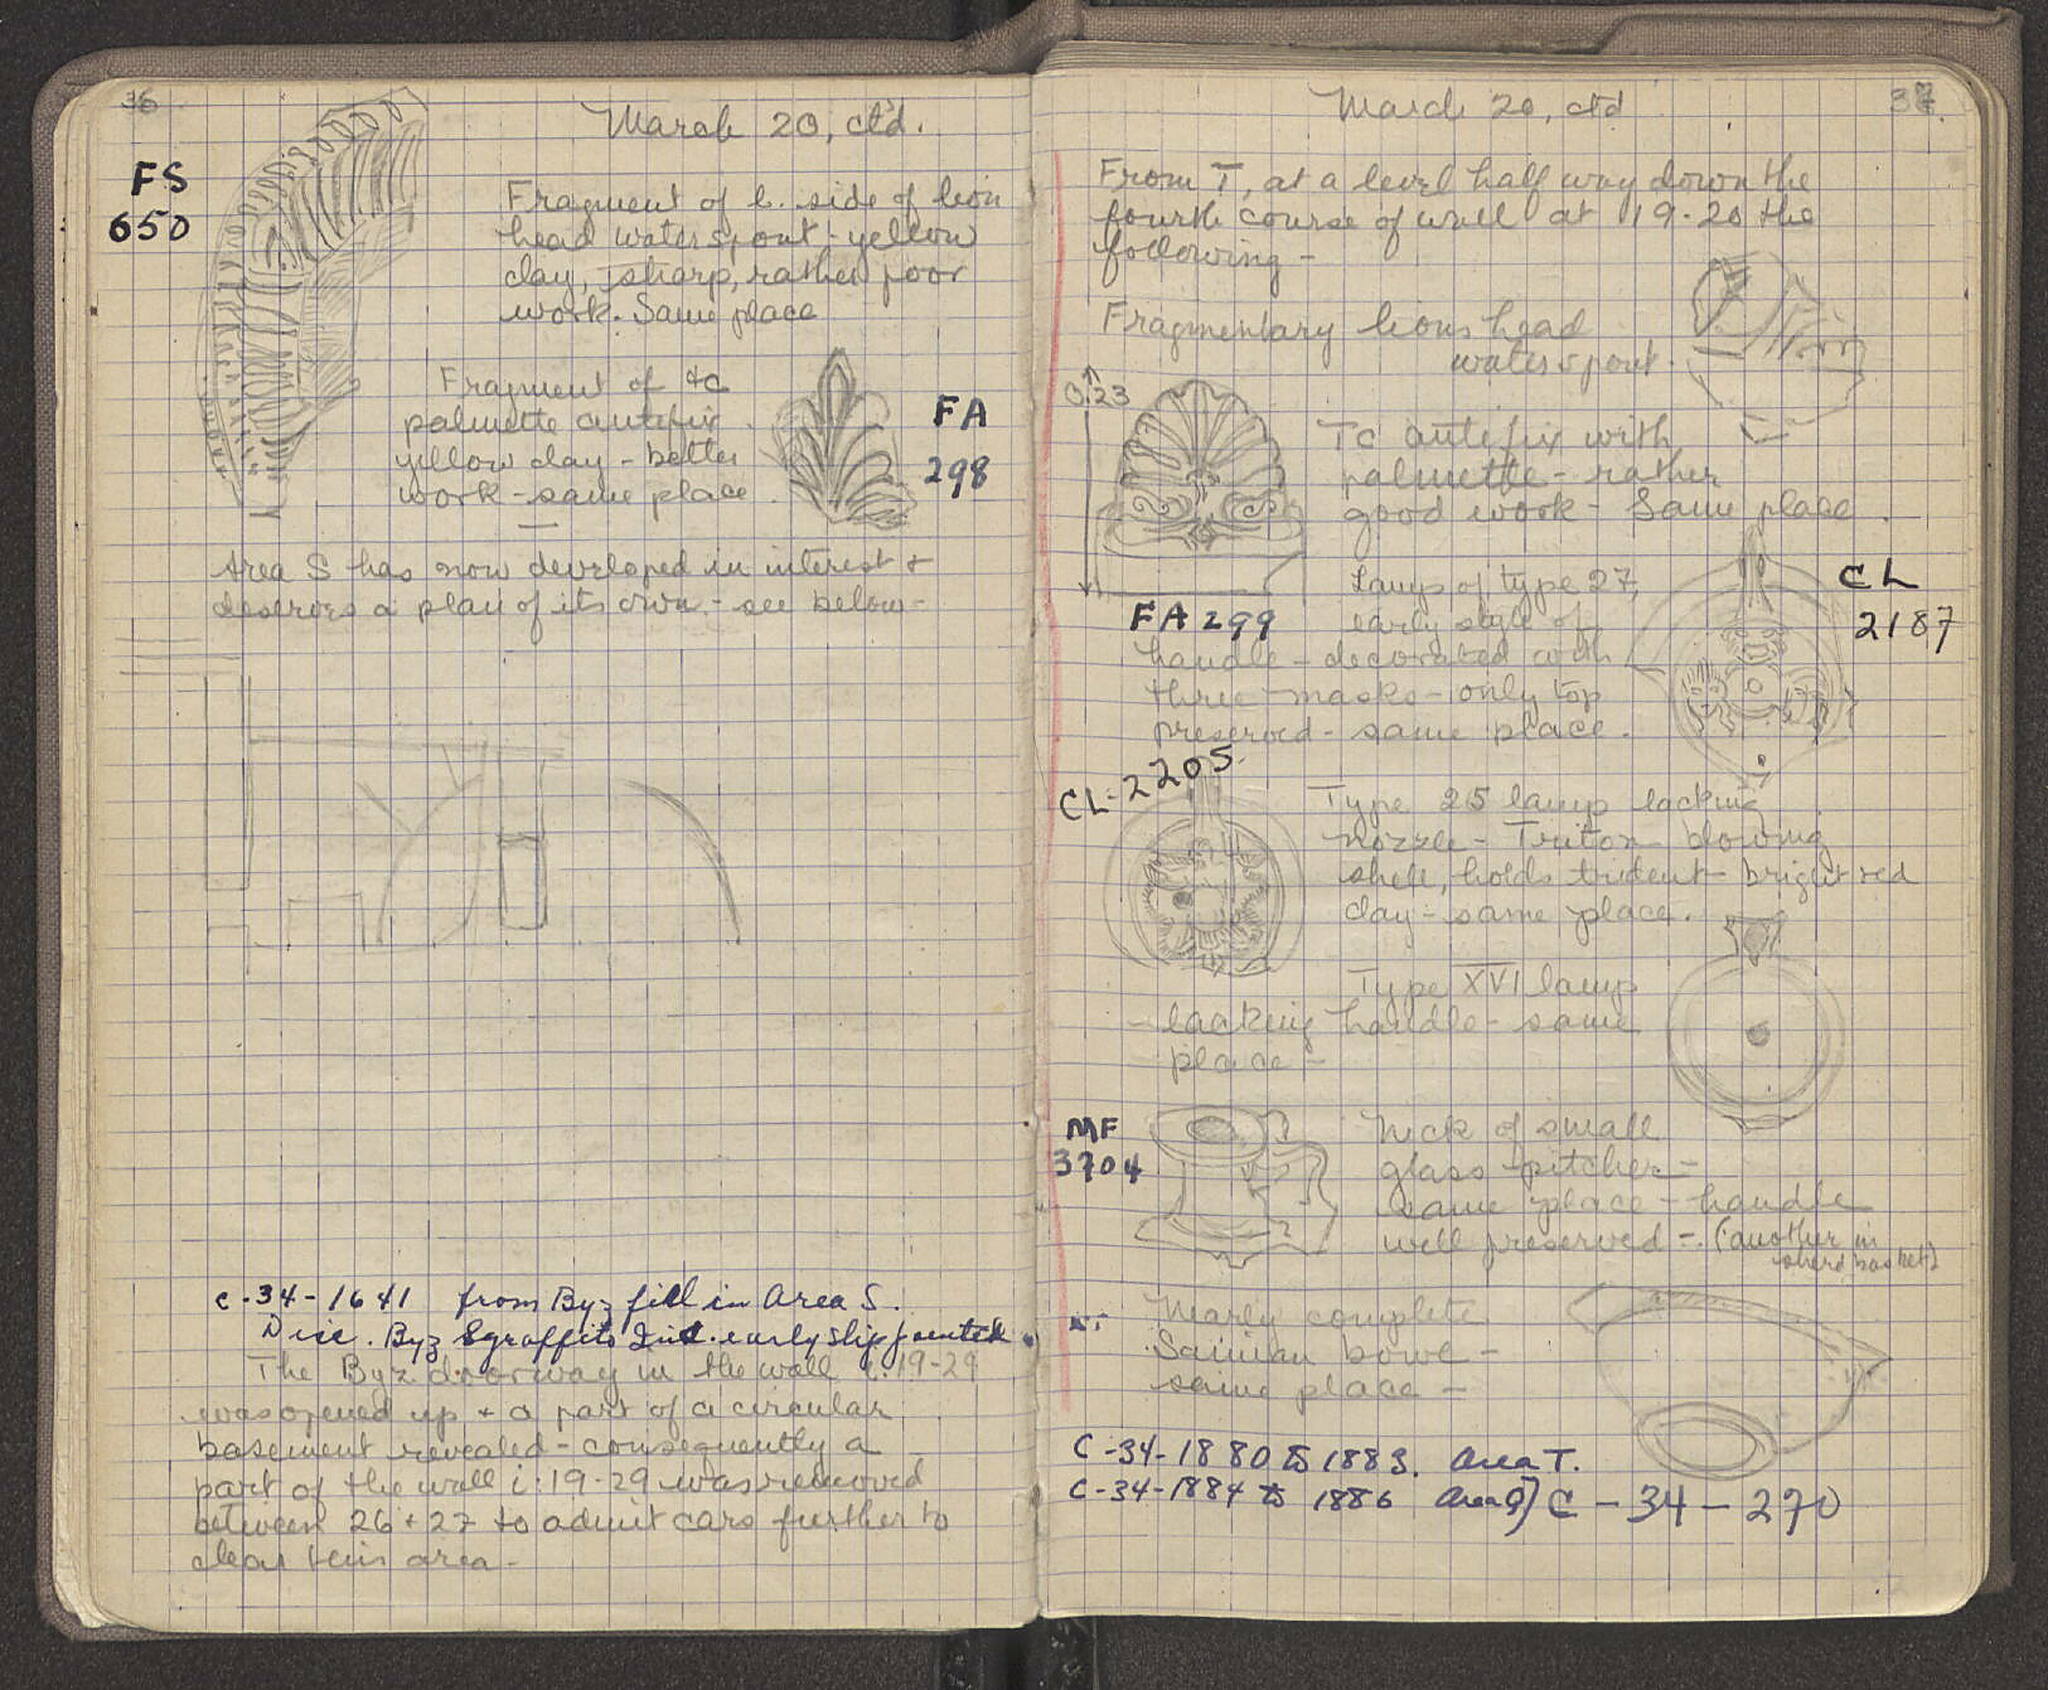 36
March 20, ct'd.
FS
650
Fragment of l. side of lion
head waterspout - yellow
clay, sharp, rather poor
work. Same place
Fragment of tc
palmette antefix
yellow clay - better
work - same place.
FA
298
Area S has now developed in interest +
deserves a plan of its own - see below -
C-34-1641 from Byz fill in Area S.
Disc. Byz Sgraffito early slip painted
The Byz. doorway in the wall i:19-29
was opened up + a part of a circular
basement revealed - consequently a
part of the wall i:19-29 was removed
between 26 + 27 to admit cars further to
clear this area -
37.
March 20, ctd
From T, at a level half way down the
fourth course of wall at 19-20 the
following -
Fragmentary lions head
waterspout.
0.23
Tc antefix with
palmette - rather
good work - Same place.
FA 299
Lamp of type 27,
early style of
handle - decorated with
three masks - only top
preserved - same place.
CL
2187
CL-2205
Type 25 lamp lacking
nozzle - Triton blowing
shell, holds trident - bright red
clay - same place.
Type XVI lamp
- lacking handle - same
place -
MF
3704
Neck of small
glass pitcher -
same place - handle
well preserved - (another in
sherd basket)
Nearly complete
Samian bowl -
same place -
C-34-1880 to 1883. Area T.
C-34-1884 to 1886 Area
C-34-270